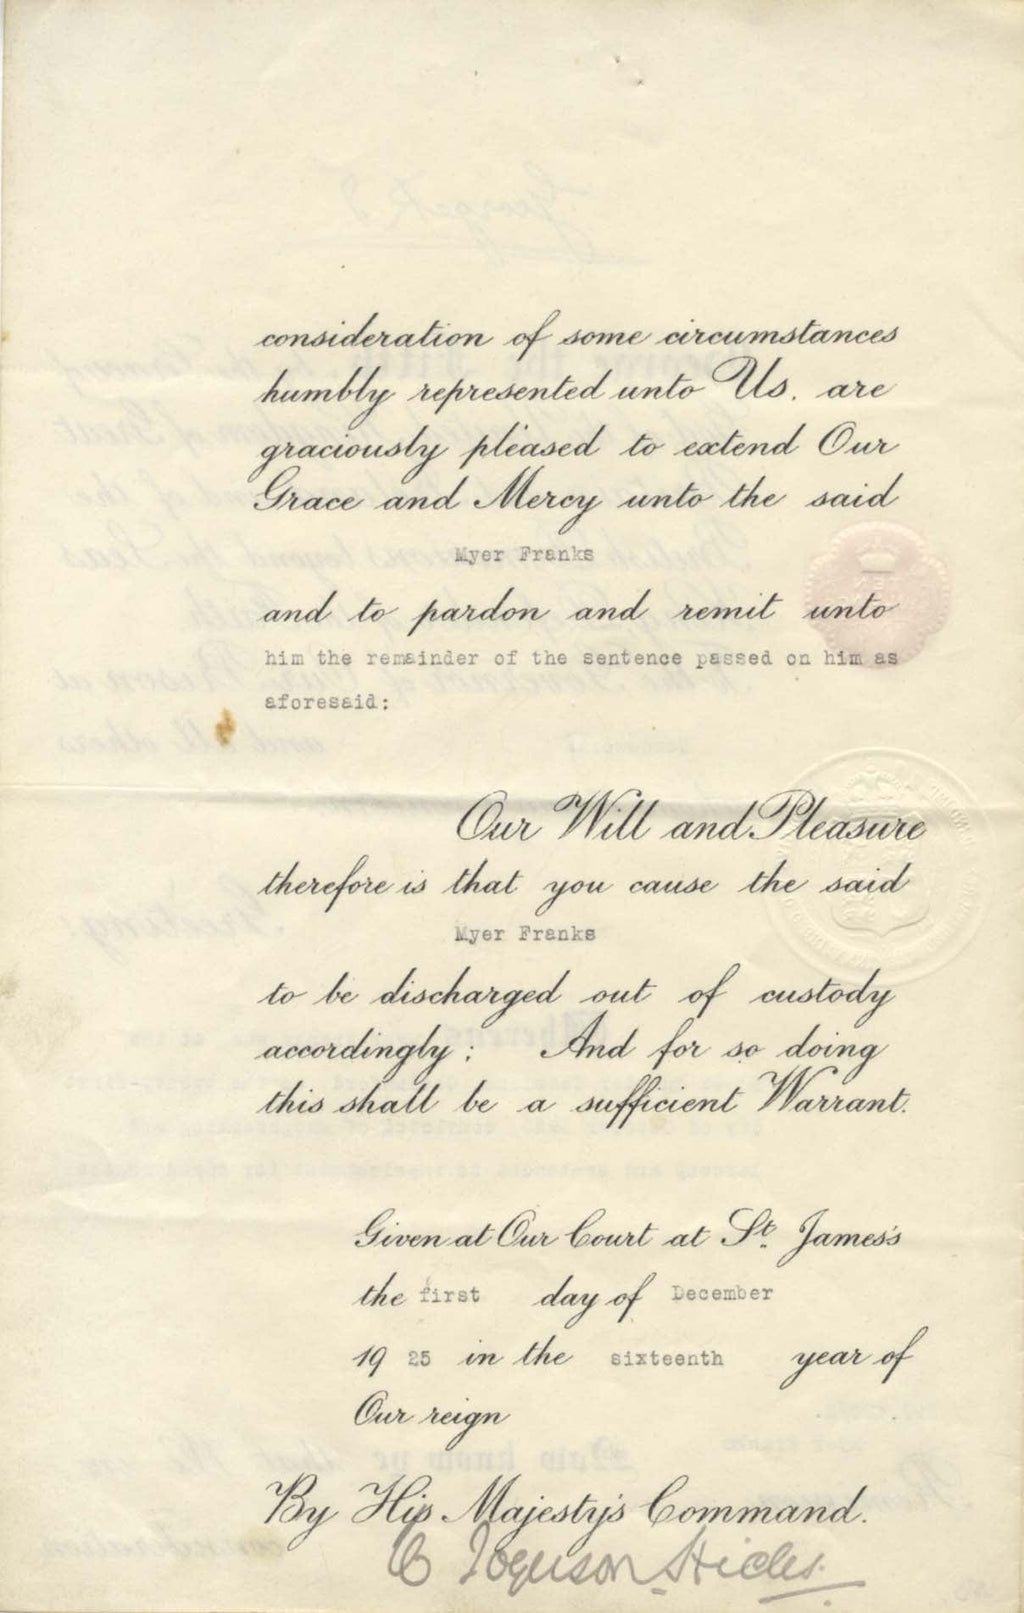 consideration of some circumstances
humbly represented unto Us, are
graciously pleased to extend Our
Grace and Mercy unto the said
Myer Franks
and to pardon and remit unto
him the remainder of the sentence passed on him as
aforesaid:
Our Will and Pleasure
therefore is that you cause the said
Myer Franks
to be discharged out of custody
accordingly; And for so doing
this shall be a sufficient Warrant.
Given at Our Court at St. James's
the first day of December
1925 in the sixteenth year of
Our reign
By His Majesty's Command.